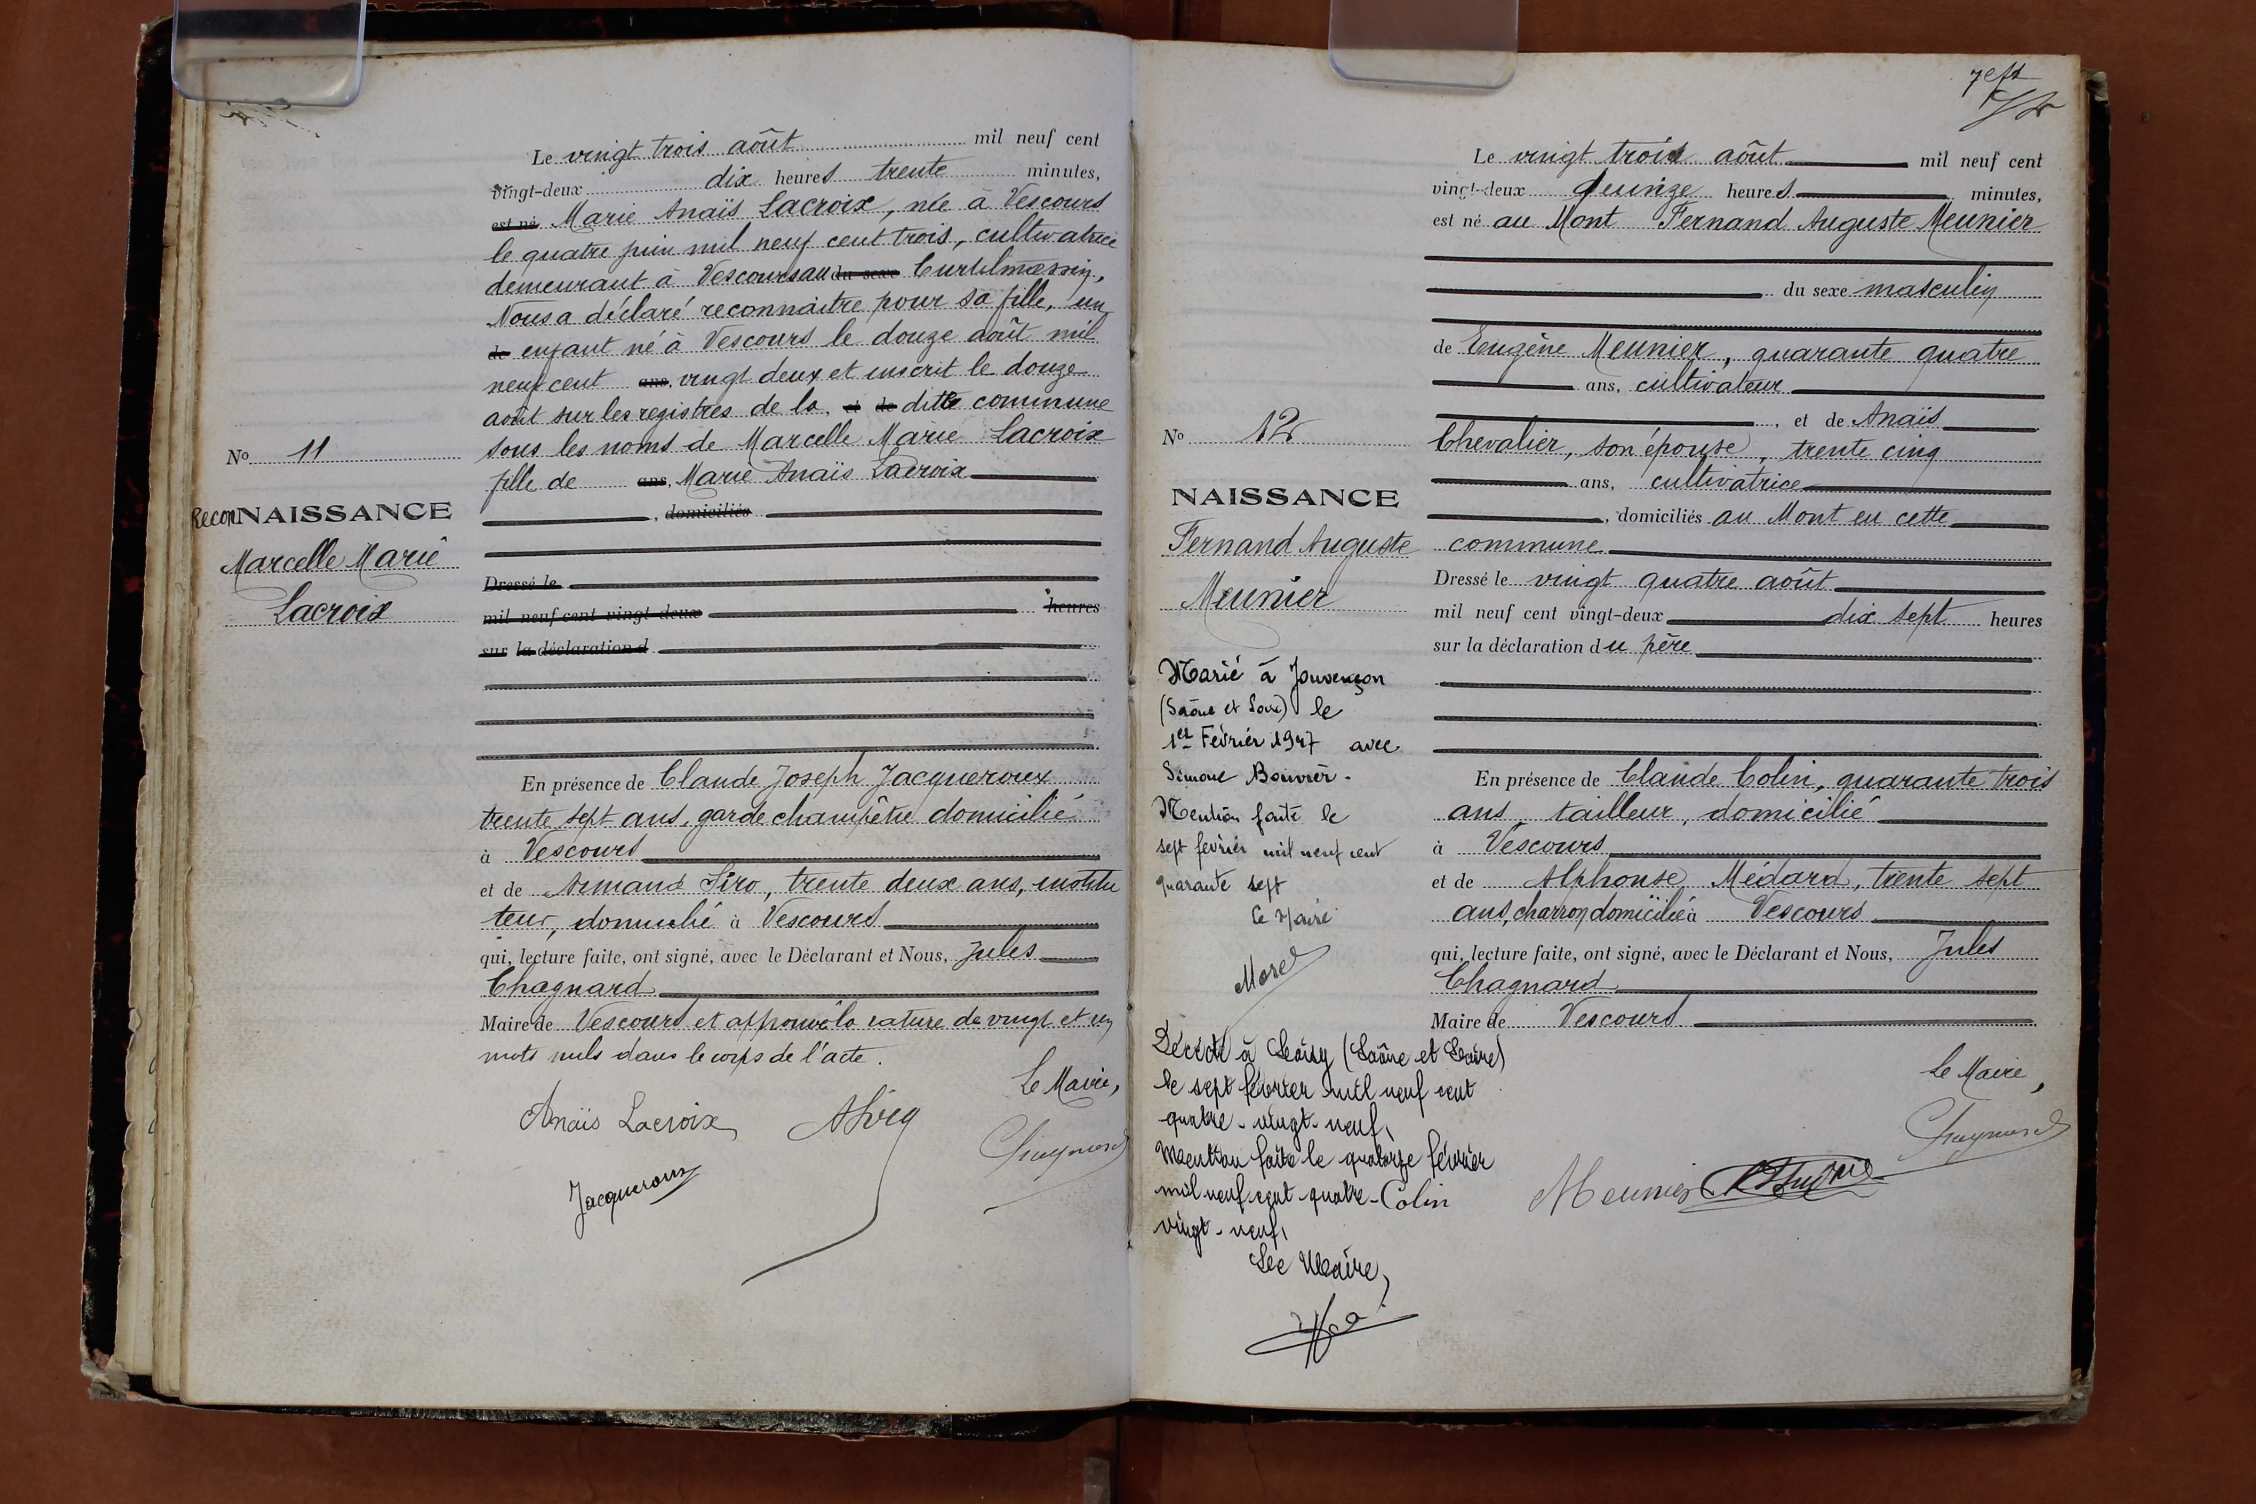 Le vingt trois août mil neuf cent
vingt-deux dix heures trente minutes,
est né Marie Anaïs Lacroix, née à Vescours
le quatre juin mil neuf cent trois, cultivatrice
demeurant à Vescours au du sexe Curtilmassin,
Nous a déclaré reconnaitre pour sa fille, un
de enfant né à Vescours le douze août mil
neuf cent ans, vingt deux et inscrit le douze
août sur les registres de la, et de ditte commune
sous les noms de Marcelle Marie Lacroix
fille de ans, Marie Anaïs Lacroix
, domiciliés
Dressé le
mil neuf cent vingt-deux heures
sur la déclaration d
En présence de Claude Joseph Jacqueroux
trente sept ans, garde champêtre domicilié
à Vescours
et de Armand Siro, trente deux ans, institu
teur, domicilié à Vescours
qui, lecture faite, ont signé, avec le Déclarant et Nous, Jules
Chagnard
Maire de Vescours et approuvé la rature de vingt et un
mots nuls dans le corps de l'acte.
Le Maire,
Anaïs Lacroix ASiro
Chagnard
Jacqueroux
No 11
ReconNAISSANCE
Marcelle Marie
Lacroix
Le vingt trois août mil neuf cent
vingt-deux quinze heures minutes,
est né au Mont Fernand Auguste Meunier
du sexe masculin
de Eugène Meunier, quarante quatre
ans, cultivateur
, et de Anaïs
Chevalier, son épouse, trente cinq
ans, cultivatrice
, domiciliés au Mont en cette
commune
Dressé le vingt quatre août
mil neuf cent vingt-deux dix sept heures
sur la déclaration du père
En présence de Claude Colin, quarante trois
ans, tailleur, domicilié
à Vescours
et de Alphonse Médard, trente sept
ans, charron domicilié à Vescours
qui, lecture faite, ont signé, avec le Déclarant et Nous, Jules
Chagnard
Maire de Vescours
Le Maire,
Chagnard
Colin Meunier
No 12
NAISSANCE
Fernand Auguste
Meunier
Marié à Jouvençon
(Saône et Loire) le
1er Février 1947 avec
Simone Bouvier.
Mention faite le
sept février mil neuf cent
quarante sept
Le Maire
Morel
Décédé à Loisy (Saône et Loire)
le sept février mil neuf cent
quatre-vingt-neuf,
Mention faite le quatorze février
mil neuf cent quatre-
vingt-neuf,
Le Maire,